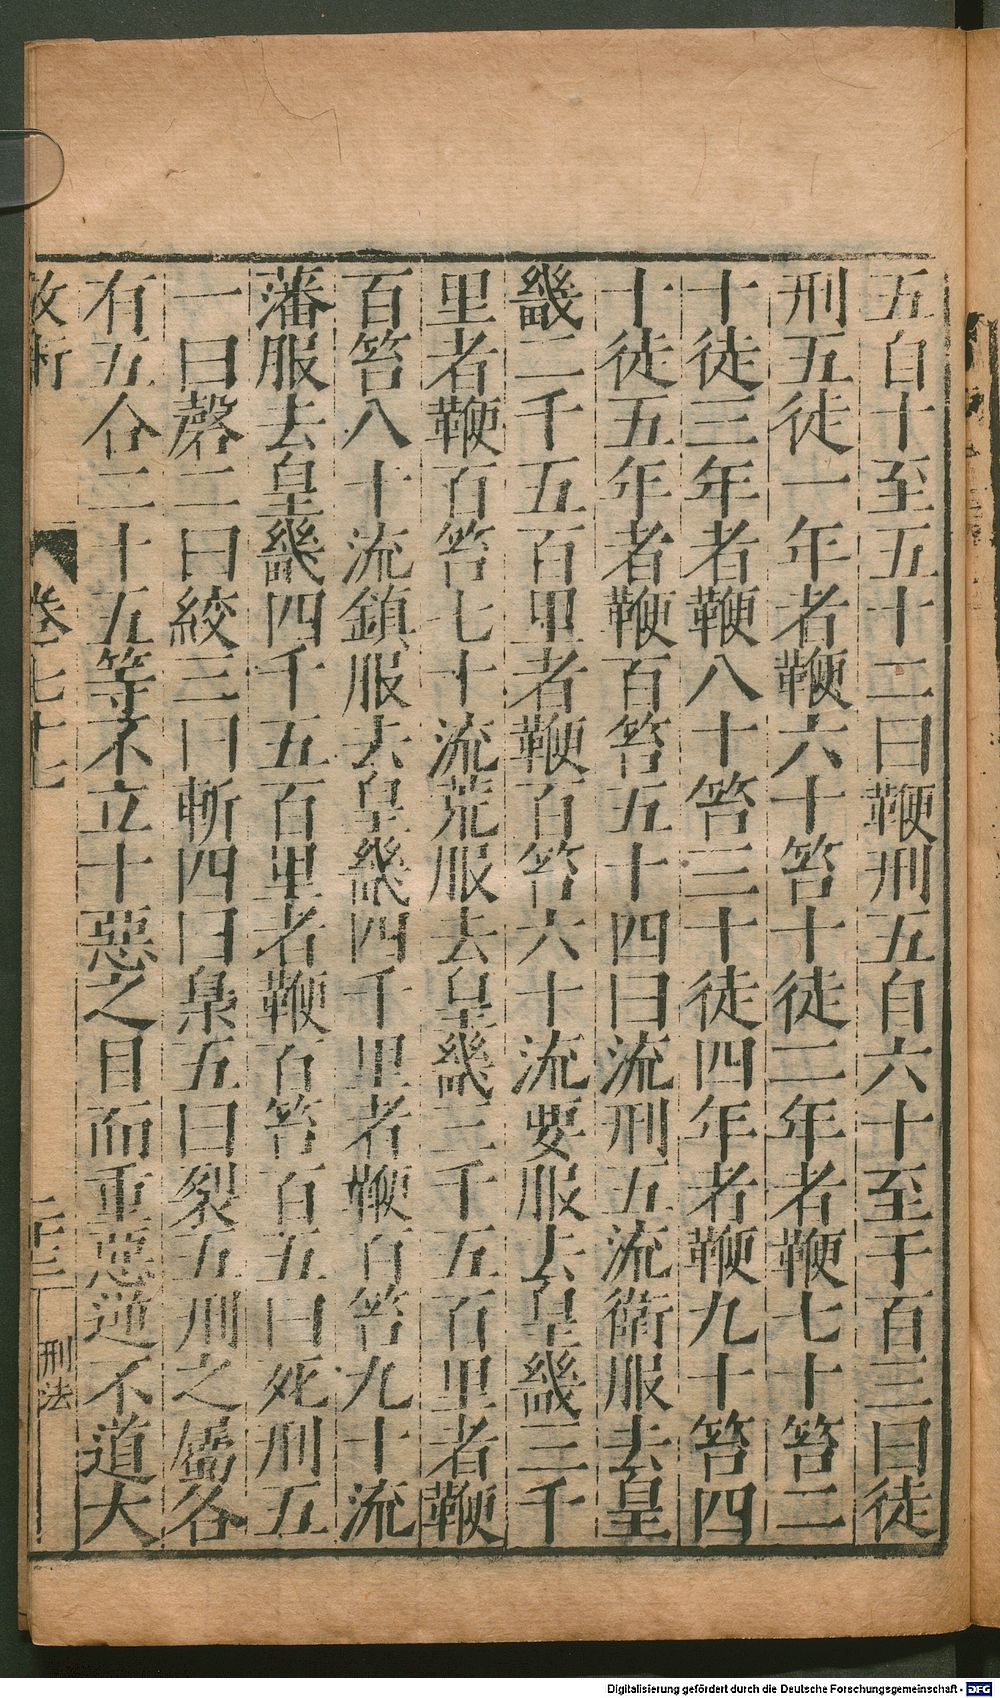 五自十至五十二曰鞭刑五自六十至于百三曰徒
刑五徒一年者鞭六十笞十徒二年者鞭七十笞二
十徒三年者鞭八十笞三十徒四年者鞭九十笞四
十徒五年者鞭百笞五十四曰流刑五流衛服去皇
畿二千五百里者鞭百笞六十流要服去皇畿三千
里者鞭百笞七十流荒服去皇畿三千五百里者鞭
百笞八十流鎮服去皇畿四千里者鞭百笞九十流
藩服去皇畿四千五百里者鞭百笞百五曰死刑五
一曰磬二曰絞三曰斬四曰梟五曰裂五刑之屬各
有五合二十五等不立十惡之目而重惡逆不道大
卷七十七 二十三 刑法
Digitalisierung gefördert durch die Deutsche Forschungsgemeinschaft - DFG